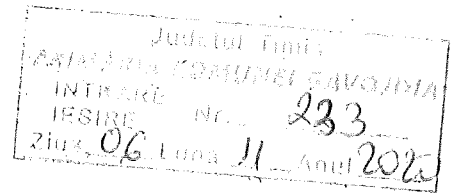 Județul Timiș
PRIMĂRIA COMUNEI GAVOJDIA
INTRARE
IEȘIRE Nr. 223
Ziua 06 Luna 11 Anul 2020